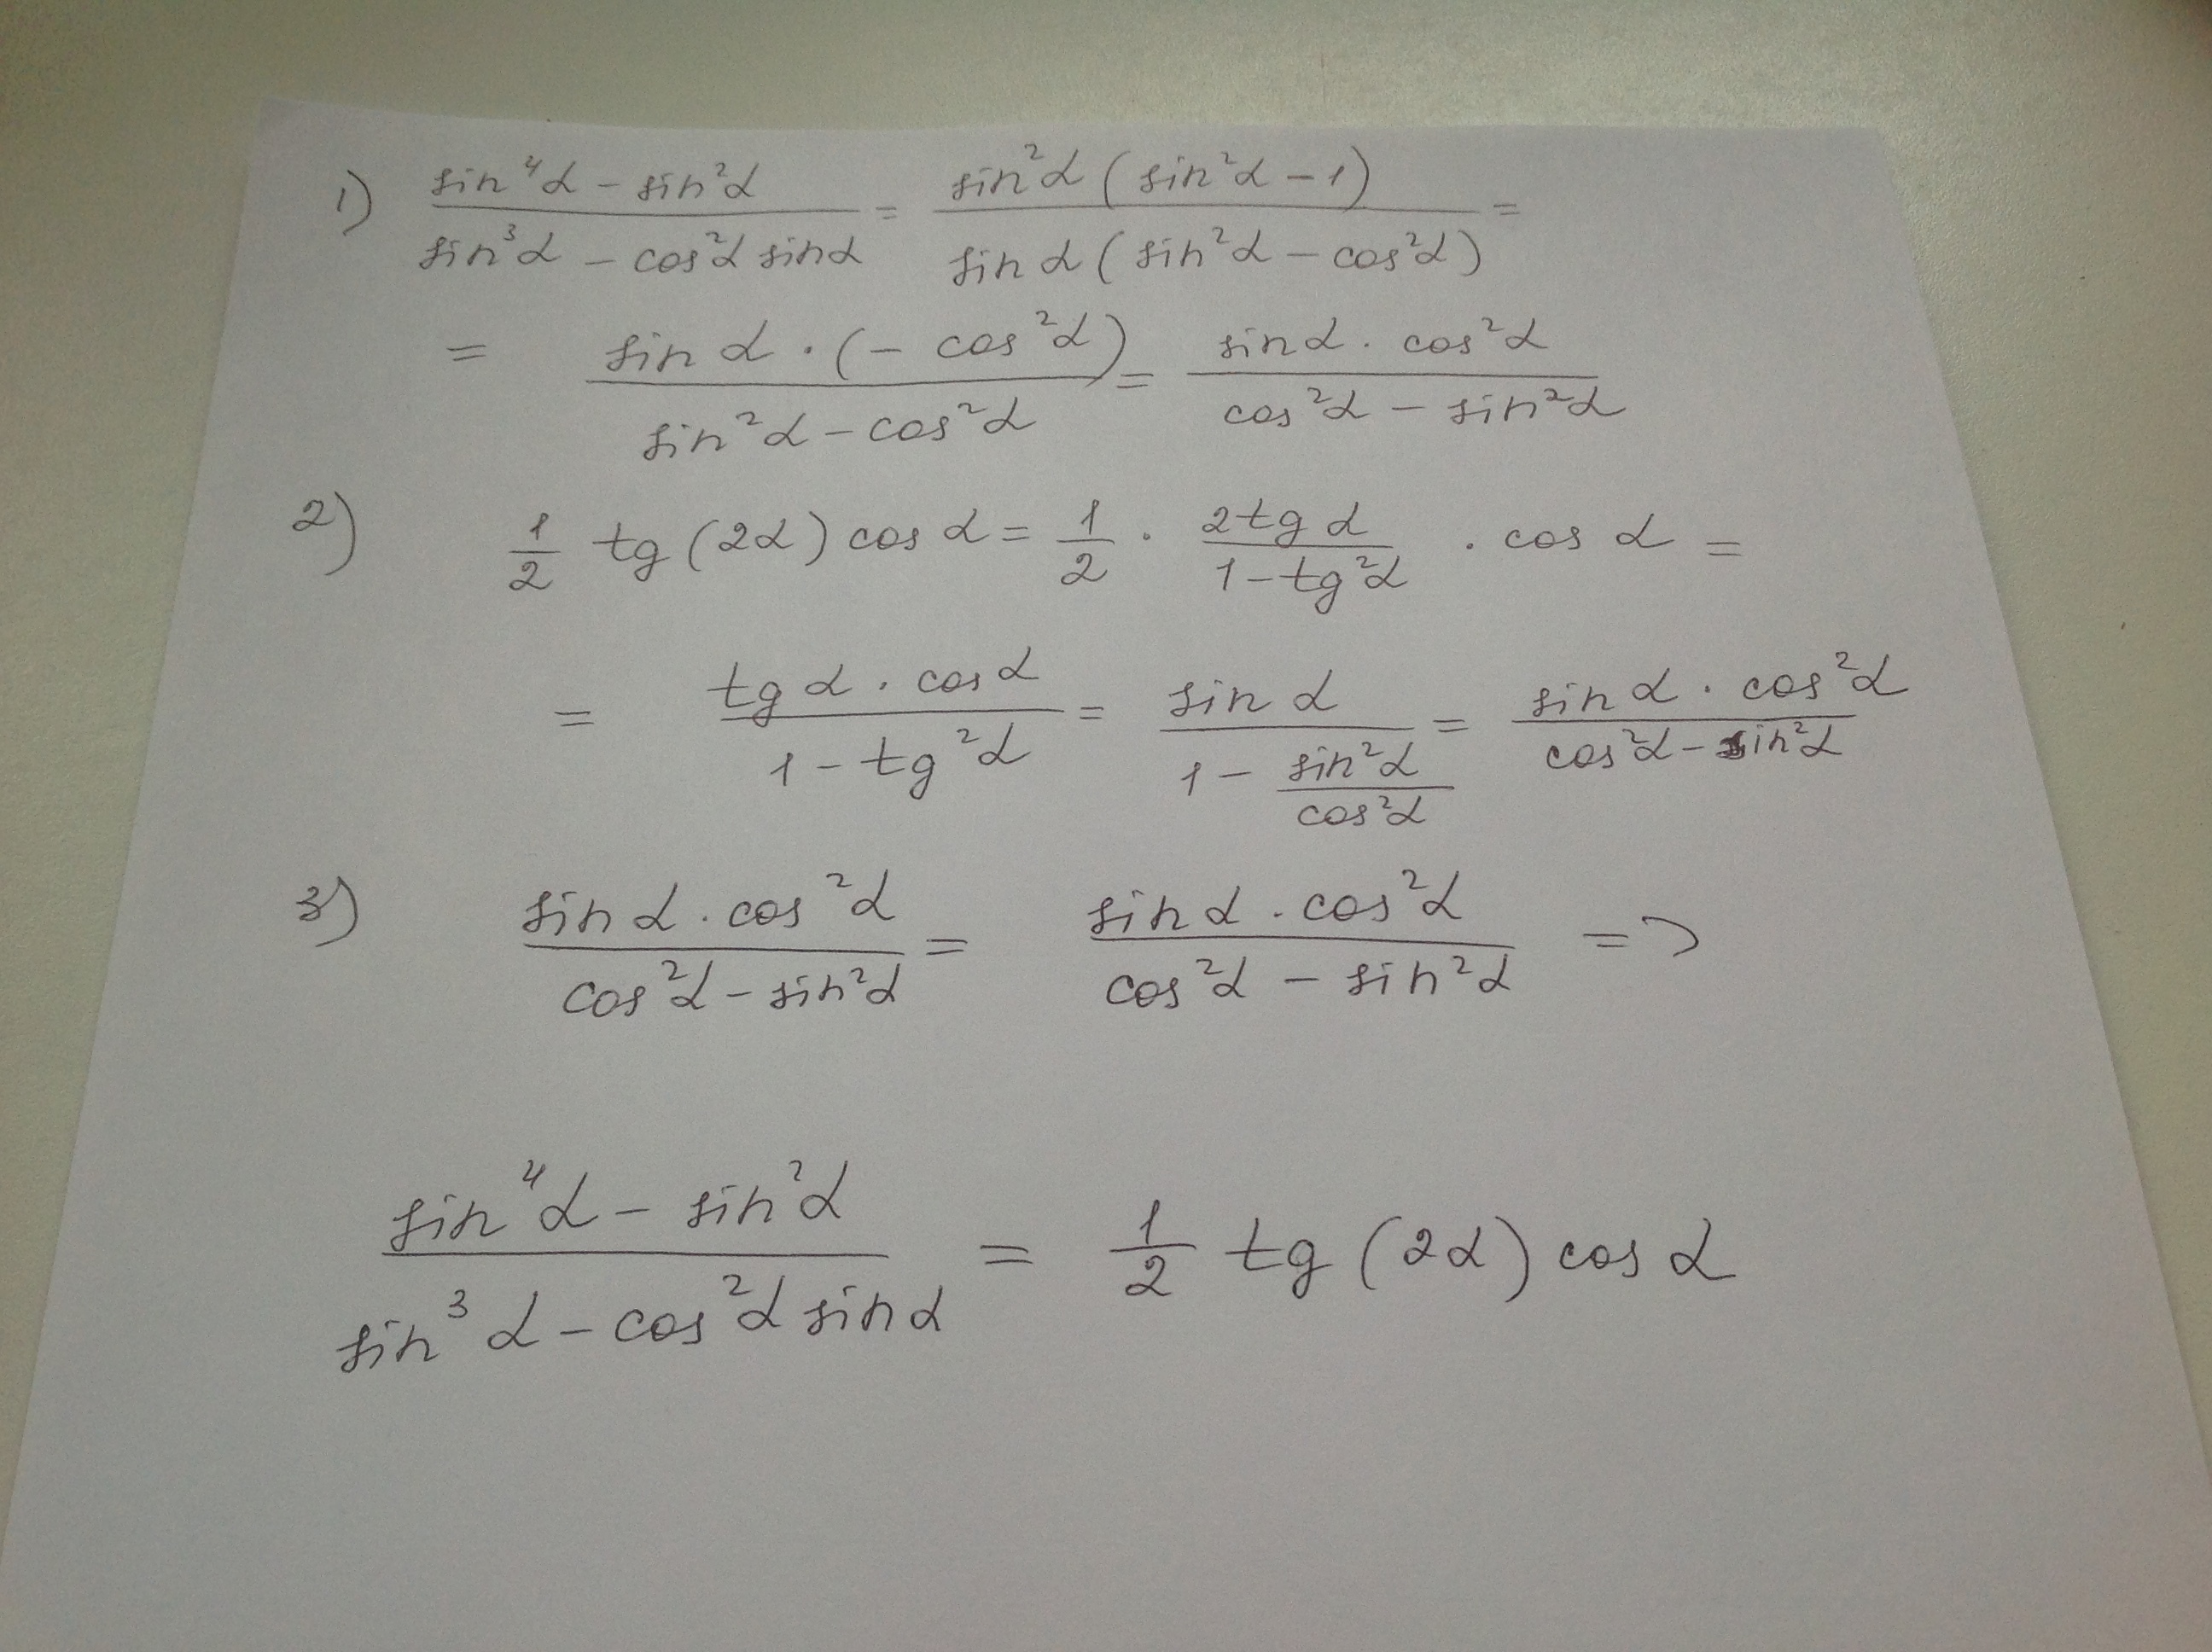 1) (sin⁴α − sin²α)/(sin³α − cos²α sinα) = (sin²α (sin²α − 1))/(sin α (sin²α − cos²α)) =
= (sin α · (− cos²α))/(sin²α − cos²α) = (sinα · cos²α)/(cos²α − sin²α)
2) 1/2 tg (2α) cos α = 1/2 · (2tg α)/(1 − tg²α) · cos α =
= (tg α · cos α)/(1 − tg²α) = (sin α)/(1 − (sin²α)/(cos²α)) = (sin α · cos²α)/(cos²α − sin²α)
3) (sin α · cos²α)/(cos²α − sin²α) = (sin α · cos²α)/(cos²α − sin²α) =>
(sin⁴α − sin²α)/(sin³α − cos²α sin α) = 1/2 tg (2α) cos α